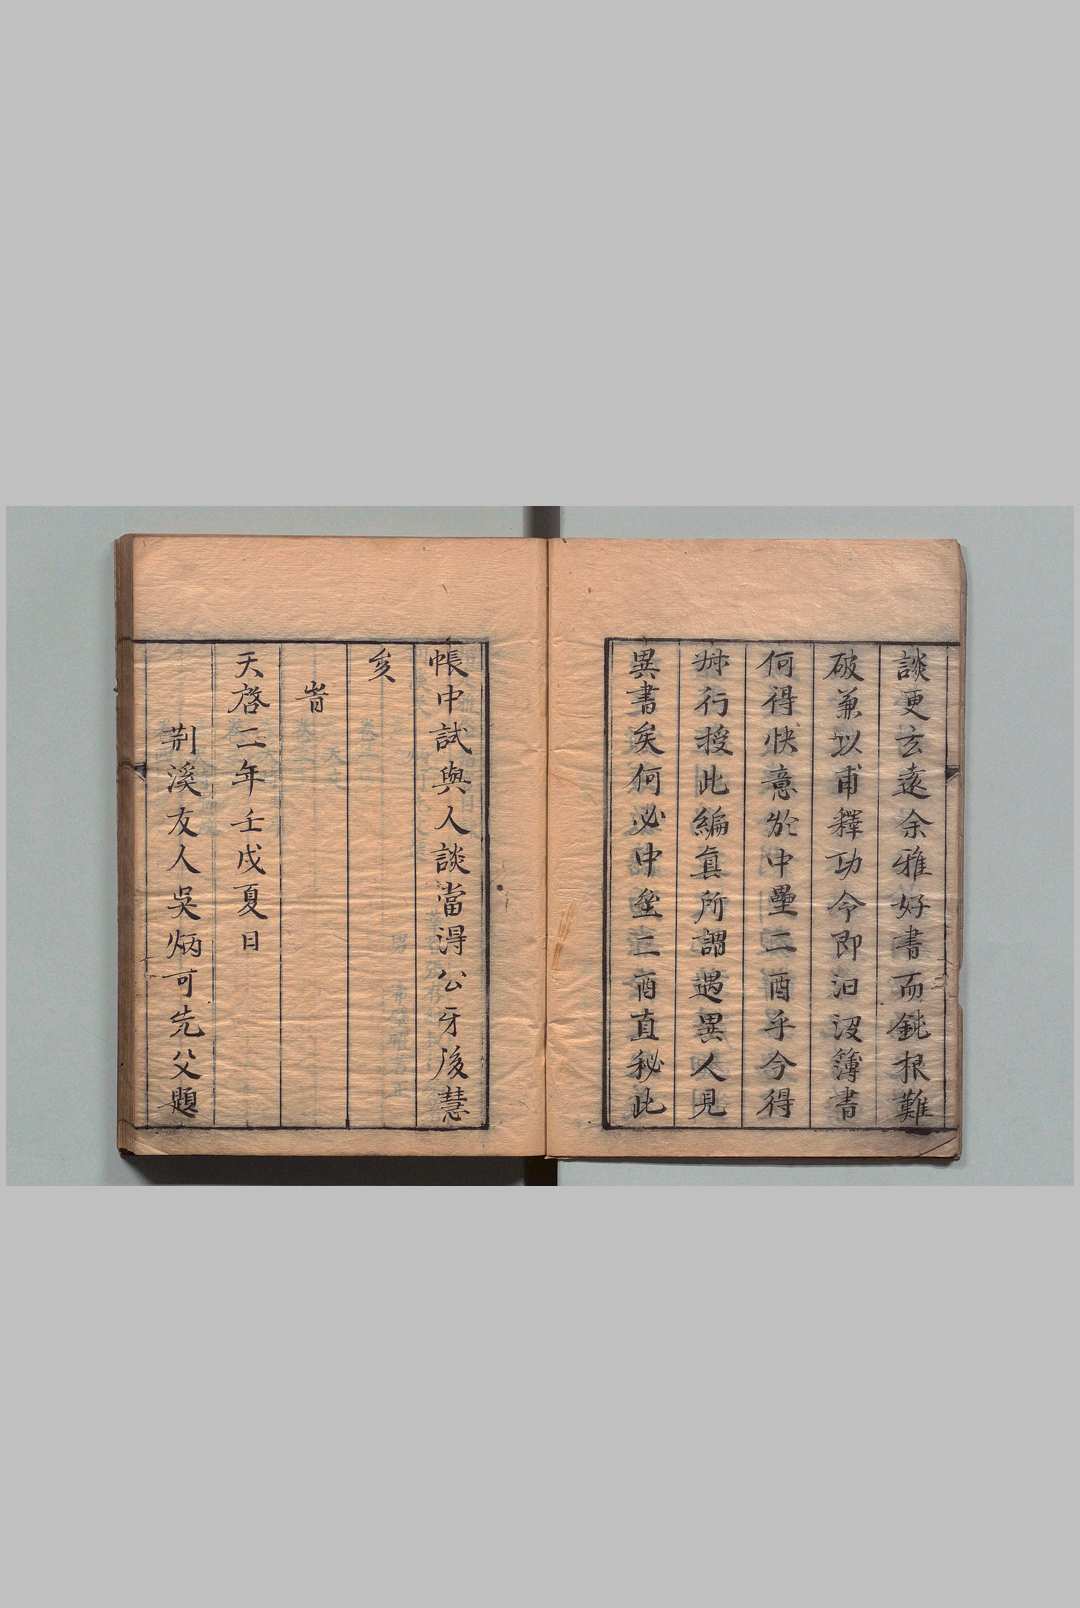 談更玄遠余雅好書而鈍根難
破兼以甫釋功令即汩沒簿書
何得快意於中壘二酉乎今得
𣥺行授此編真所謂遇異人見
異書矣何必中壘二酉直秘此
帳中試與人談當得公牙後慧
矣
旹
天啓二年壬戌夏日
荆溪友人吳炳可先父題